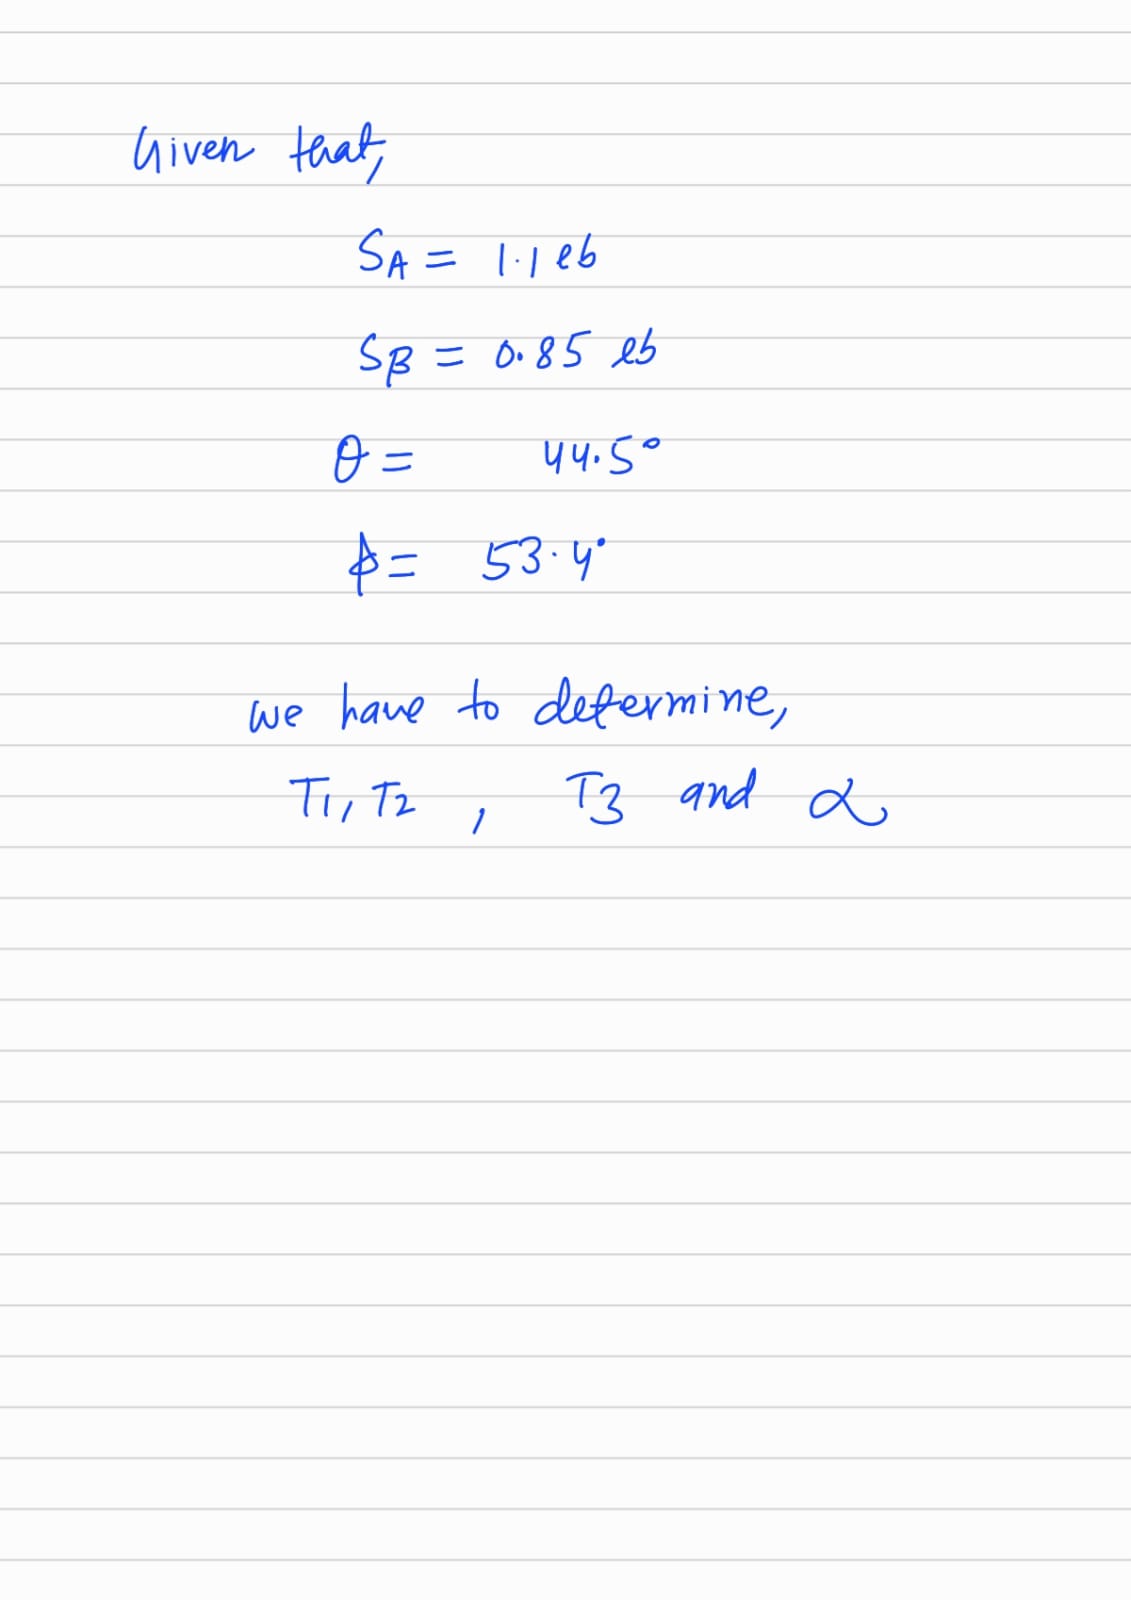 Given that,
SA = 1.1 lb
SB = 0.85 lb
θ = 44.5°
ϕ = 53.4°
we have to determine,
T1, T2 , T3 and α